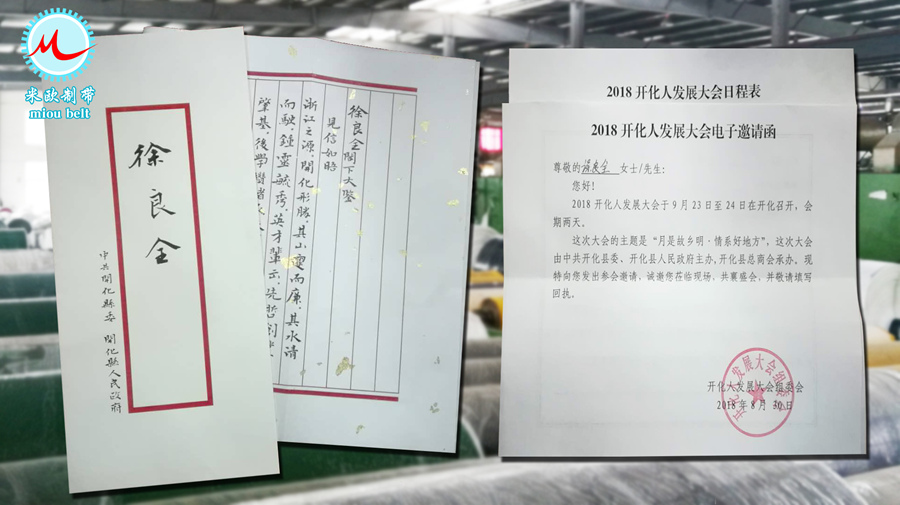 米欧制带
miou belt
徐良全
中共開化縣委 開化縣人民政府
徐良全閣下大鑒
見信如晤
浙江之源，開化形勝，其山而廉，其水清
而駛，鍾靈毓秀，英才輩示，先哲創
肇基，後學
2018 开化人发展大会日程表
2018 开化人发展大会电子邀请函
尊敬的徐良全 女士/先生：
您好！
2018 开化人发展大会于 9 月 23 日至 24 日在开化召开，会
期两天。
这次大会的主题是“月是故乡明·情系好地方”，这次大会
由中共开化县委、开化县人民政府主办，开化县总商会承办。现
特向您发出参会邀请，诚邀您莅临现场，共襄盛会，并敬请填写
回执。
开化人发展大会组委会
2018 年 8 月 30 日